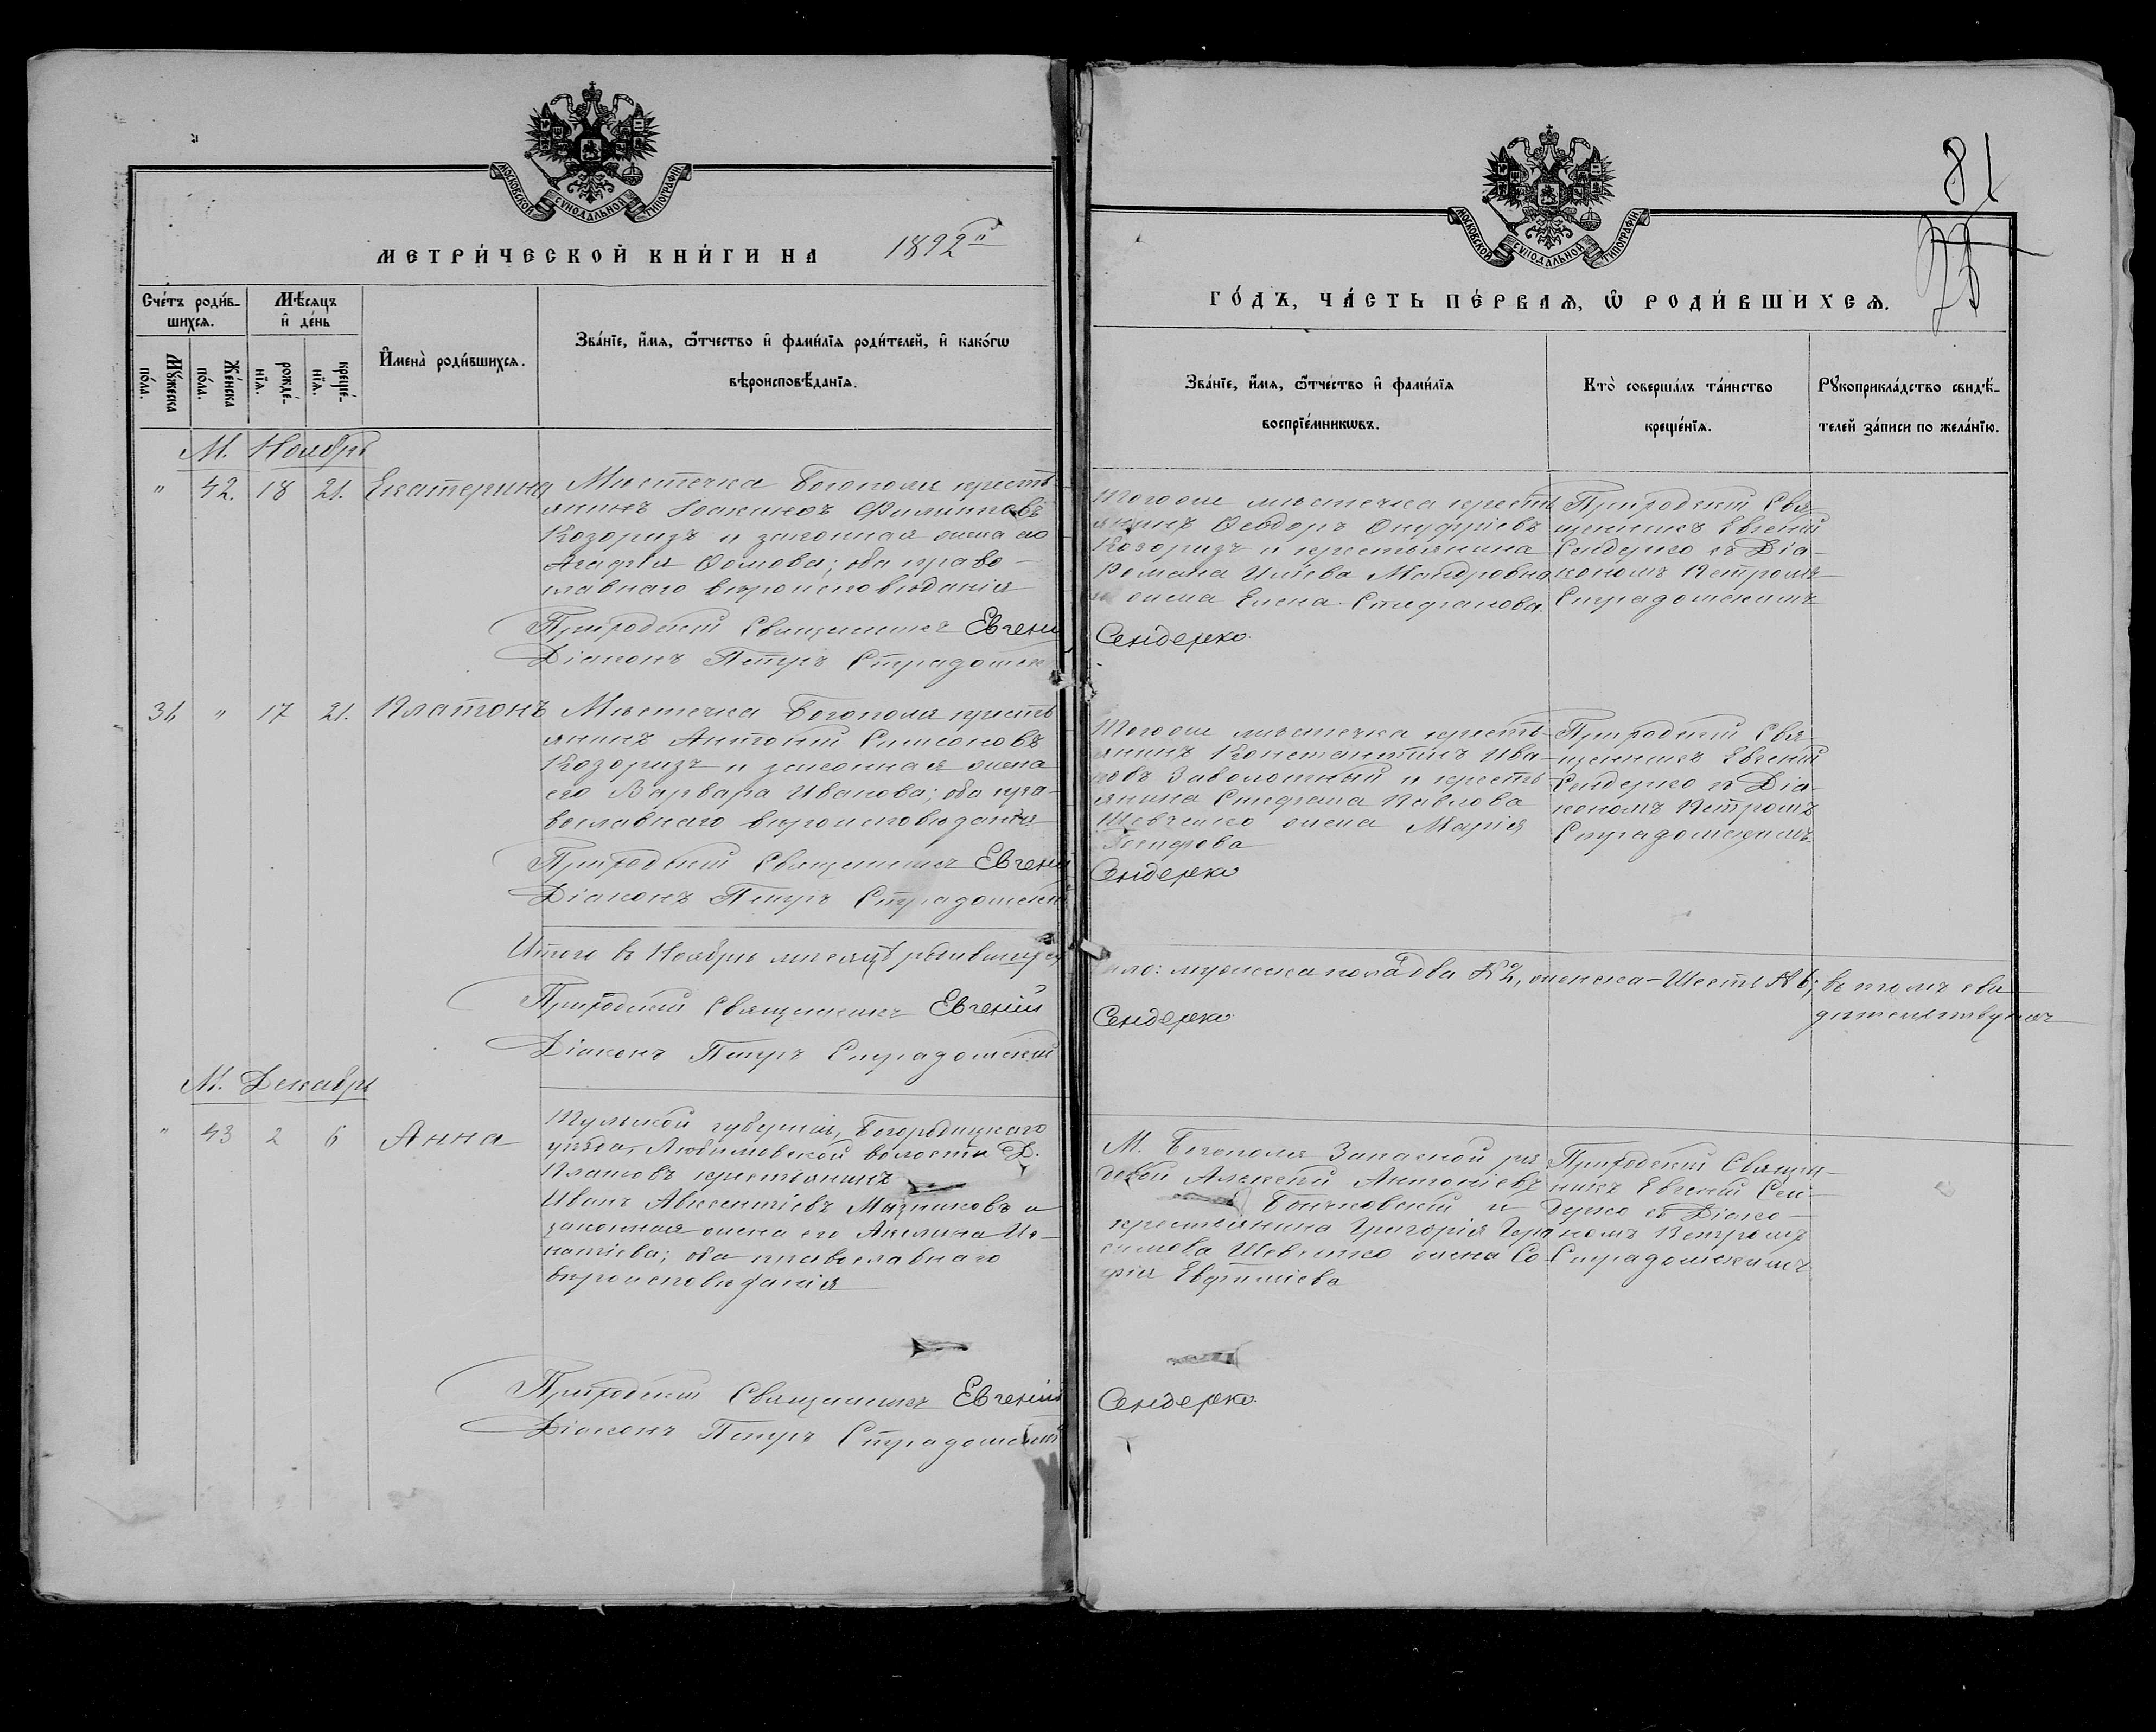 МОСКОВСКОЙ СѴНОДАЛЬНОЙ ТИПОГРАФІИ
МЕТРИ́ЧЕСКОЙ КНИ́ГИ НА 1892й
Сче́тъ роди́в-
шихсѧ.
Мѣ́сѧцъ
и҆ де́нь
Мꙋ́жеска
по́ла.
Же́нска
по́ла.
рожде́-
нїѧ.
креще́-
нїѧ.
И҆мена̀ роди́вшихсѧ.
Зва́нїе, и҆́мѧ, ѻ҆́тчество и҆ фами́лїѧ роди́телей, и҆ како́гѡ
вѣроисповѣ́данїѧ.
М. Ноябрь
" 42. 18 21. Екатерина
Мѣстечка Богополя кресть-
янинъ Іоакимъ Филипповъ
Козоризъ и законная жена его
Агафія Ѳомова; оба право-
славнаго вѣроисповѣданія
Приходскій Священникъ Евгеній
Діаконъ Петръ Страдомскій
36 " 17 21. Платонъ
Мѣстечка Богополя кресть
янинъ Антоній Симоновъ
Козоризъ и законная жена
его Варвара Иванова; оба пра-
вославнаго вѣроисповѣданія
Приходскій Священникъ Евгеній
Діаконъ Петръ Страдомскій
Итого въ Ноябрѣ мѣсяцѣ родившихся
Приходскій Священникъ Евгеній
Діаконъ Петръ Страдомскій
М. Декабрь
" 43 2 6 Анна
Тульской губерніи, Богородицкаго
уѣзда, Любимовской волости Д.
крестьянинъ
Иванъ Авксентіевъ и
законная жена его Акилина Иг-
натіева; оба православнаго
вѣроисповѣданія
Приходскій Священникъ Евгеній
Діаконъ Петръ Страдомскій
81
МОСКОВСКОЙ СѴНОДАЛЬНОЙ ТИПОГРАФІИ
ГО́ДЪ, ЧА́СТЬ ПЕ́РВАѦ, Ѡ҆ РОДИ́ВШИХСѦ.
Зва́нїе, и҆́мѧ, ѻ҆́тчество и҆ фами́лїѧ
воспрїе́мникѡвъ.
Кто̀ соверша́лъ та́инство
креще́нїѧ.
Рꙋкоприкла́дство свидѣ́-
телей за́писи по жела́нїю.
Тогоже мѣстечка кресть
янинъ Ѳеодоръ Онуфріевъ
Козоризъ и крестьянина
Романа Иліева
жена Елена Стефанова.
Приходскій Свя-
щенникъ Евгеній
Сендерко съ Діа-
кономъ Петромъ
Страдомскимъ
Сендерко
Тогоже мѣстечка кресть-
янинъ Константинъ Ива-
новъ Заболотный и кресть
янина Стефана Павлова
Шевченко жена Марія
Приходскій Свя-
щенникъ Евгеній
Сендерко съ Діа-
кономъ Петромъ
Страдомскимъ.
Сендерко
было: мужеска пола два №2, женска – Шесть №6; въ томъ сви
дѣтельствуемъ
Сендерко
М. Богополя Запасной ря-
довой Алексѣй Антоніевъ
и
крестьянина Григорія Гера
симова Шевченко жена Со-
фія Евфиміева
Приходскій Священ-
никъ Евгеній Сен-
дерко съ Діако-
номъ Петромъ
Страдомскимъ
Сендерко